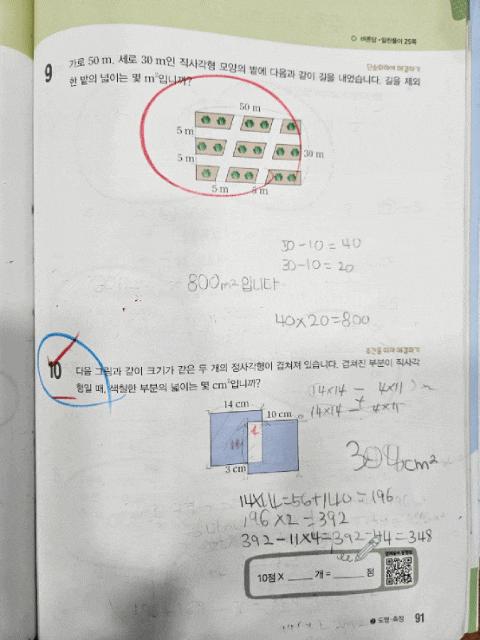 바른답·알찬풀이 25쪽
단순화하여 해결하기
9 가로 50 m, 세로 30 m인 직사각형 모양의 밭에 다음과 같이 길을 내었습니다. 길을 제외
한 밭의 넓이는 몇 m²입니까?
50 m
5 m
5 m
30 m
5 m
5 m
50-10=40
30-10=20
800m²입니다
40×20=800
조건을 따져 해결하기
10 다음 그림과 같이 크기가 같은 두 개의 정사각형이 겹쳐져 있습니다. 겹쳐진 부분이 직사각
형일 때, 색칠한 부분의 넓이는 몇 cm²입니까?
(14×14 - 4×11)
+
14×14 - 4×11
14 cm
10 cm
3 cm
304cm²
14×14=56+140=196
196×2=392
392-11×4=392-44=348
10점 × ___ 개 = ___ 점
도형·측정 91